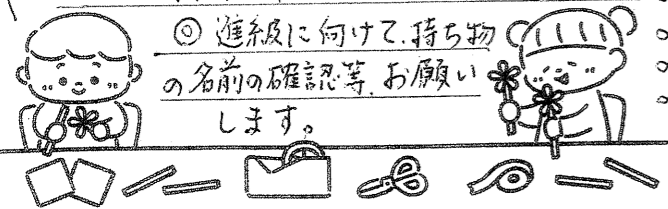 ◎ 進級に向けて、持ち物
の名前の確認等、お願い
します。